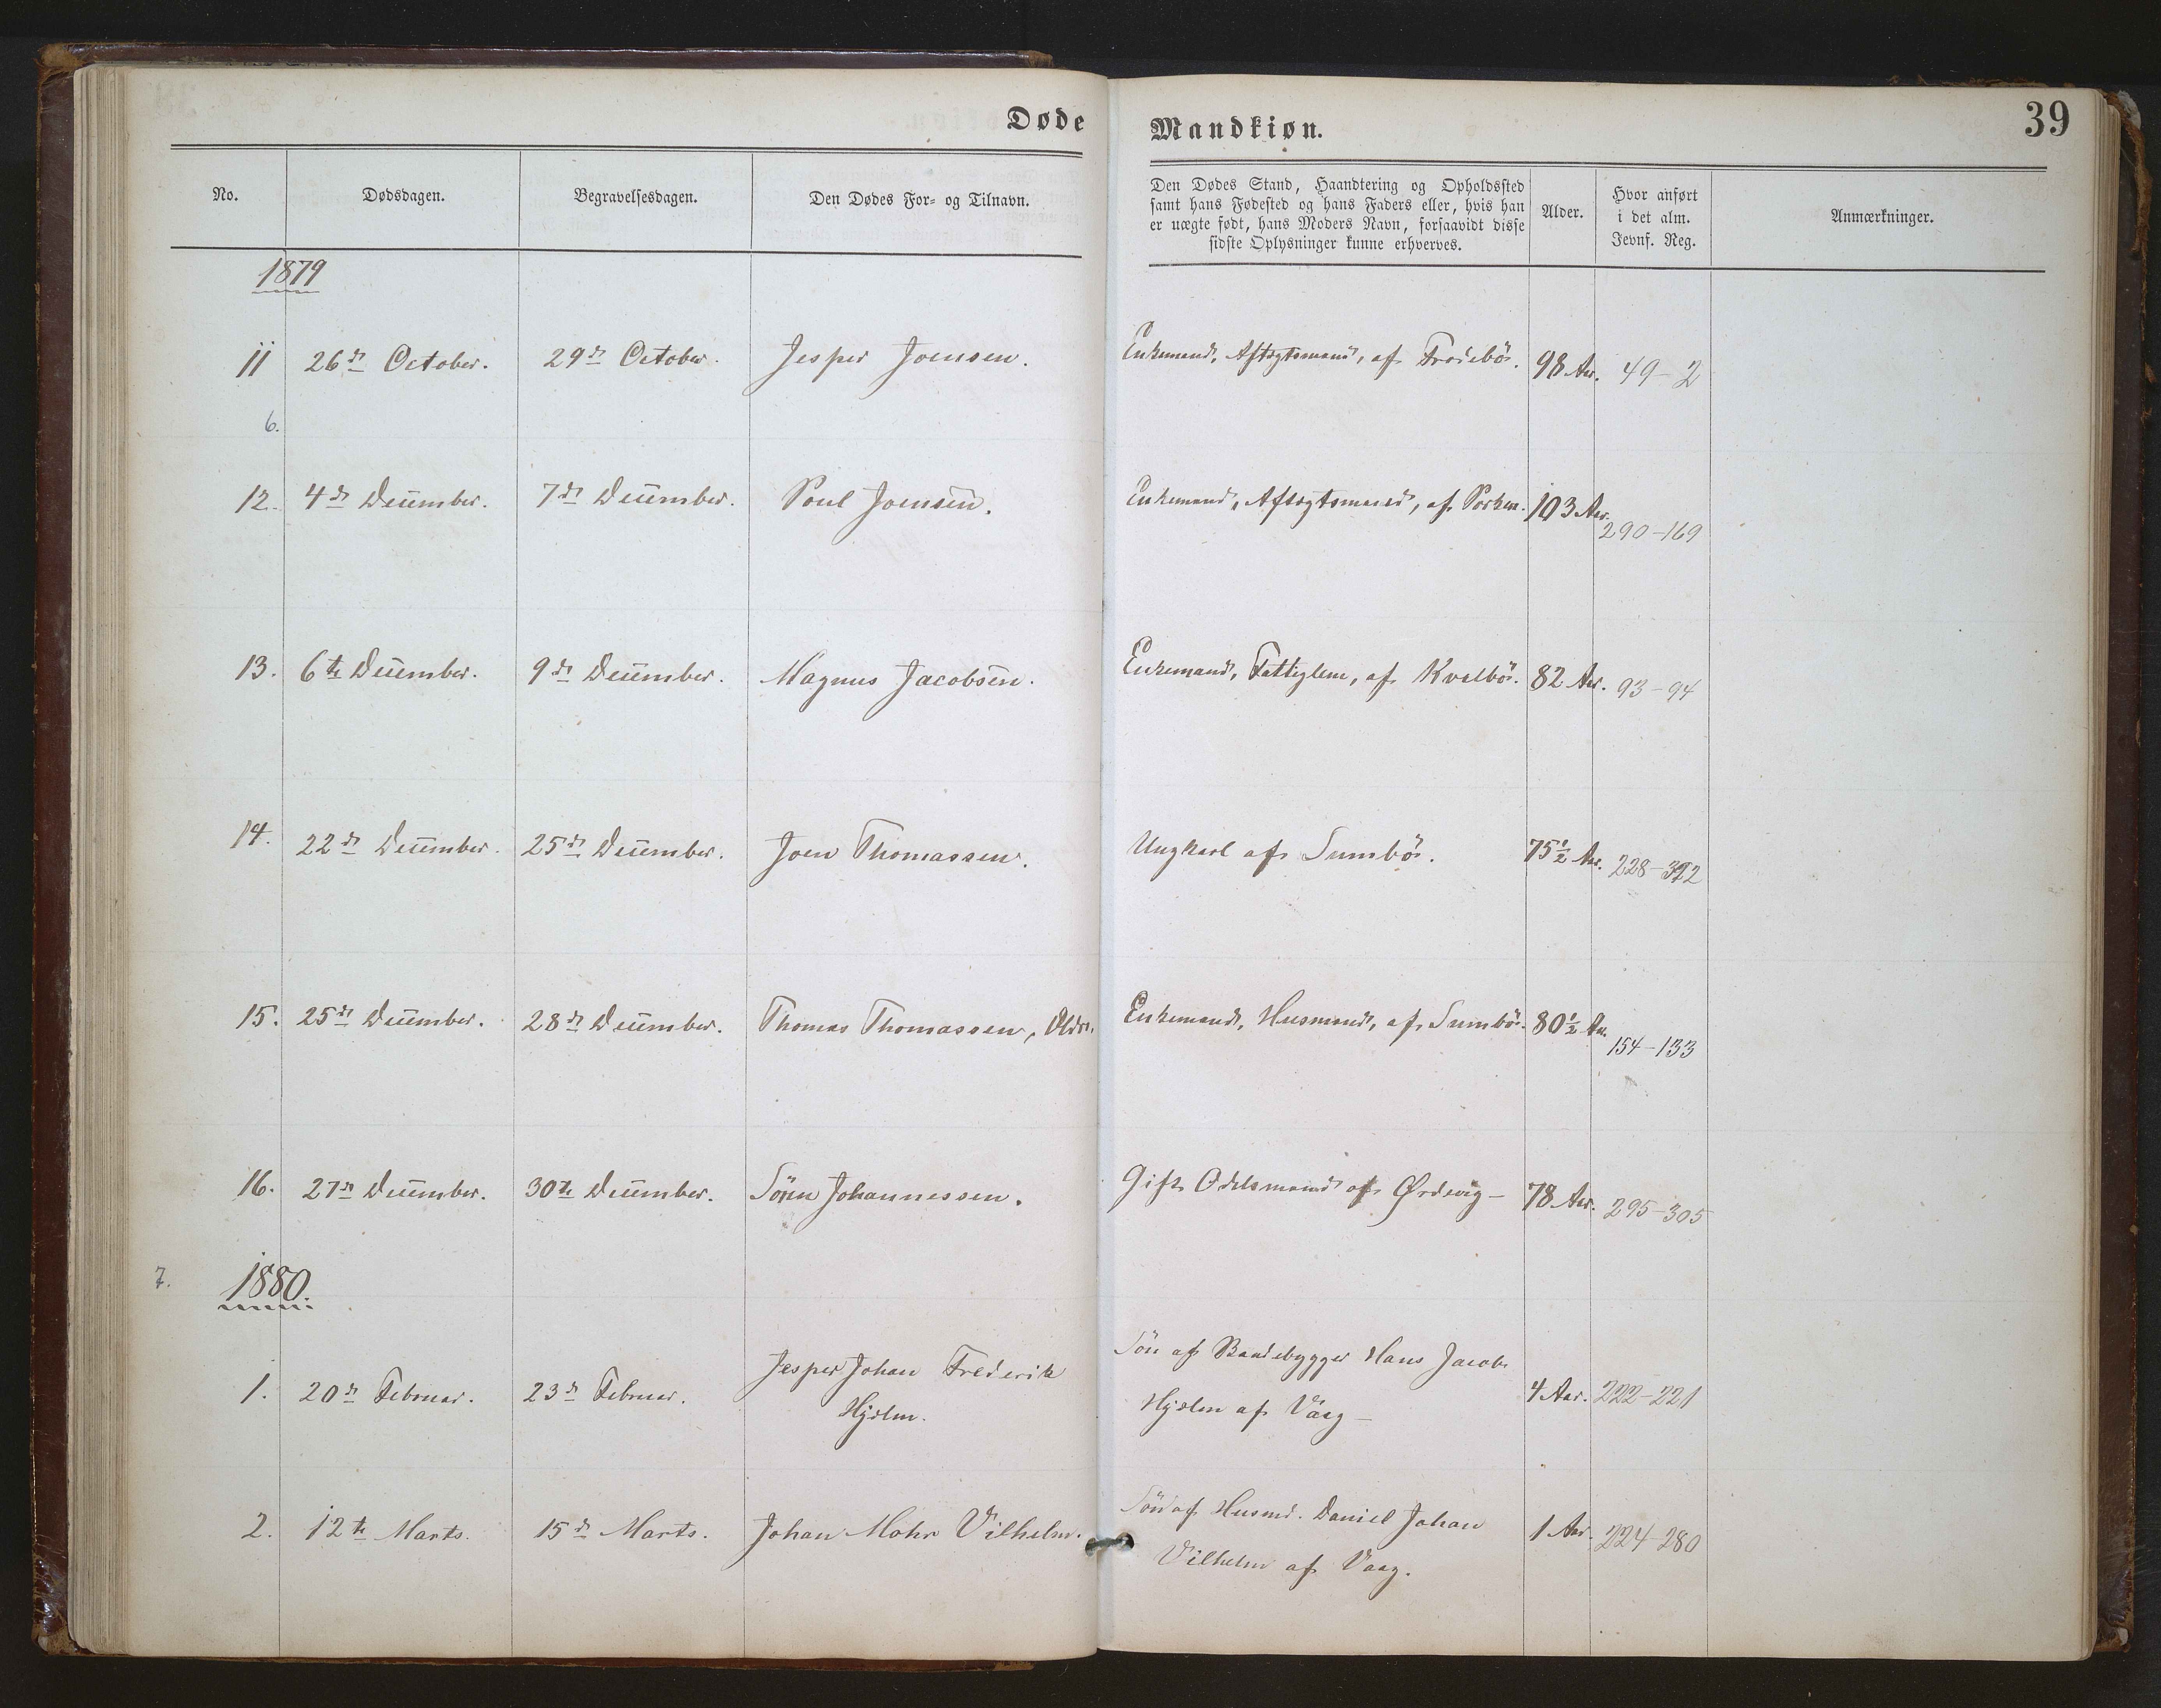 Døde Mandkiøn.
39
No. Dødsdagen. Begravelsesdagen. Den Dødes For- og Tilnavn.
Den Dødes Stand, Haandtering og Opholdssted
samt hans Fødested og hans Faders eller, hvis han
er uægte født, hans Moders Navn, forsaavidt disse
sidste Oplysninger kunne erhverves.
Alder.
Hvor anført
i det alm.
Jevnf. Reg.
Anmærkninger.
1879
11 26de October. 29de October. Jesper Joensen. Enkemand, Aftægtsmand, af Frodebö. 98 Aar. 49-2
6.
12. 4de December. 7de December. Poul Joensen. Enkemand, Aftægtsmand, af Porken. 103 Aar. 290-169
13. 6te December. 9de December. Magnus Jacobsen. Enkemand, Fattiglem, af Kvalbö. 82 Aar. 93-94
14. 22de December. 25de December. Joen Thomassen. Ungkarl af Sumbö. 75½ Aar. 228-
15. 25de December. 28de December. Thomas Thomassen, Enkemand, Husmand, af Sumbö. 80½ Aar. 154-133
16. 27de December. 30te December. Sören Johannessen. Gift Odelsmand af Ørdevig- 78 Aar. 295-305
7. 1880.
1. 20de Februar. 23de Februar. Jesper Johan Frederik
Hjelm.
Sön af Baadebygger Hans Jacob
Hjelm af Våg-
4 Aar. 222-221
2. 12te Marts. 15de Marts. Johan Mohr Vilhelm.
Sön af Husmd. Daniel Johan
Vilhelm af Vaag.
1 Aar. 224-280